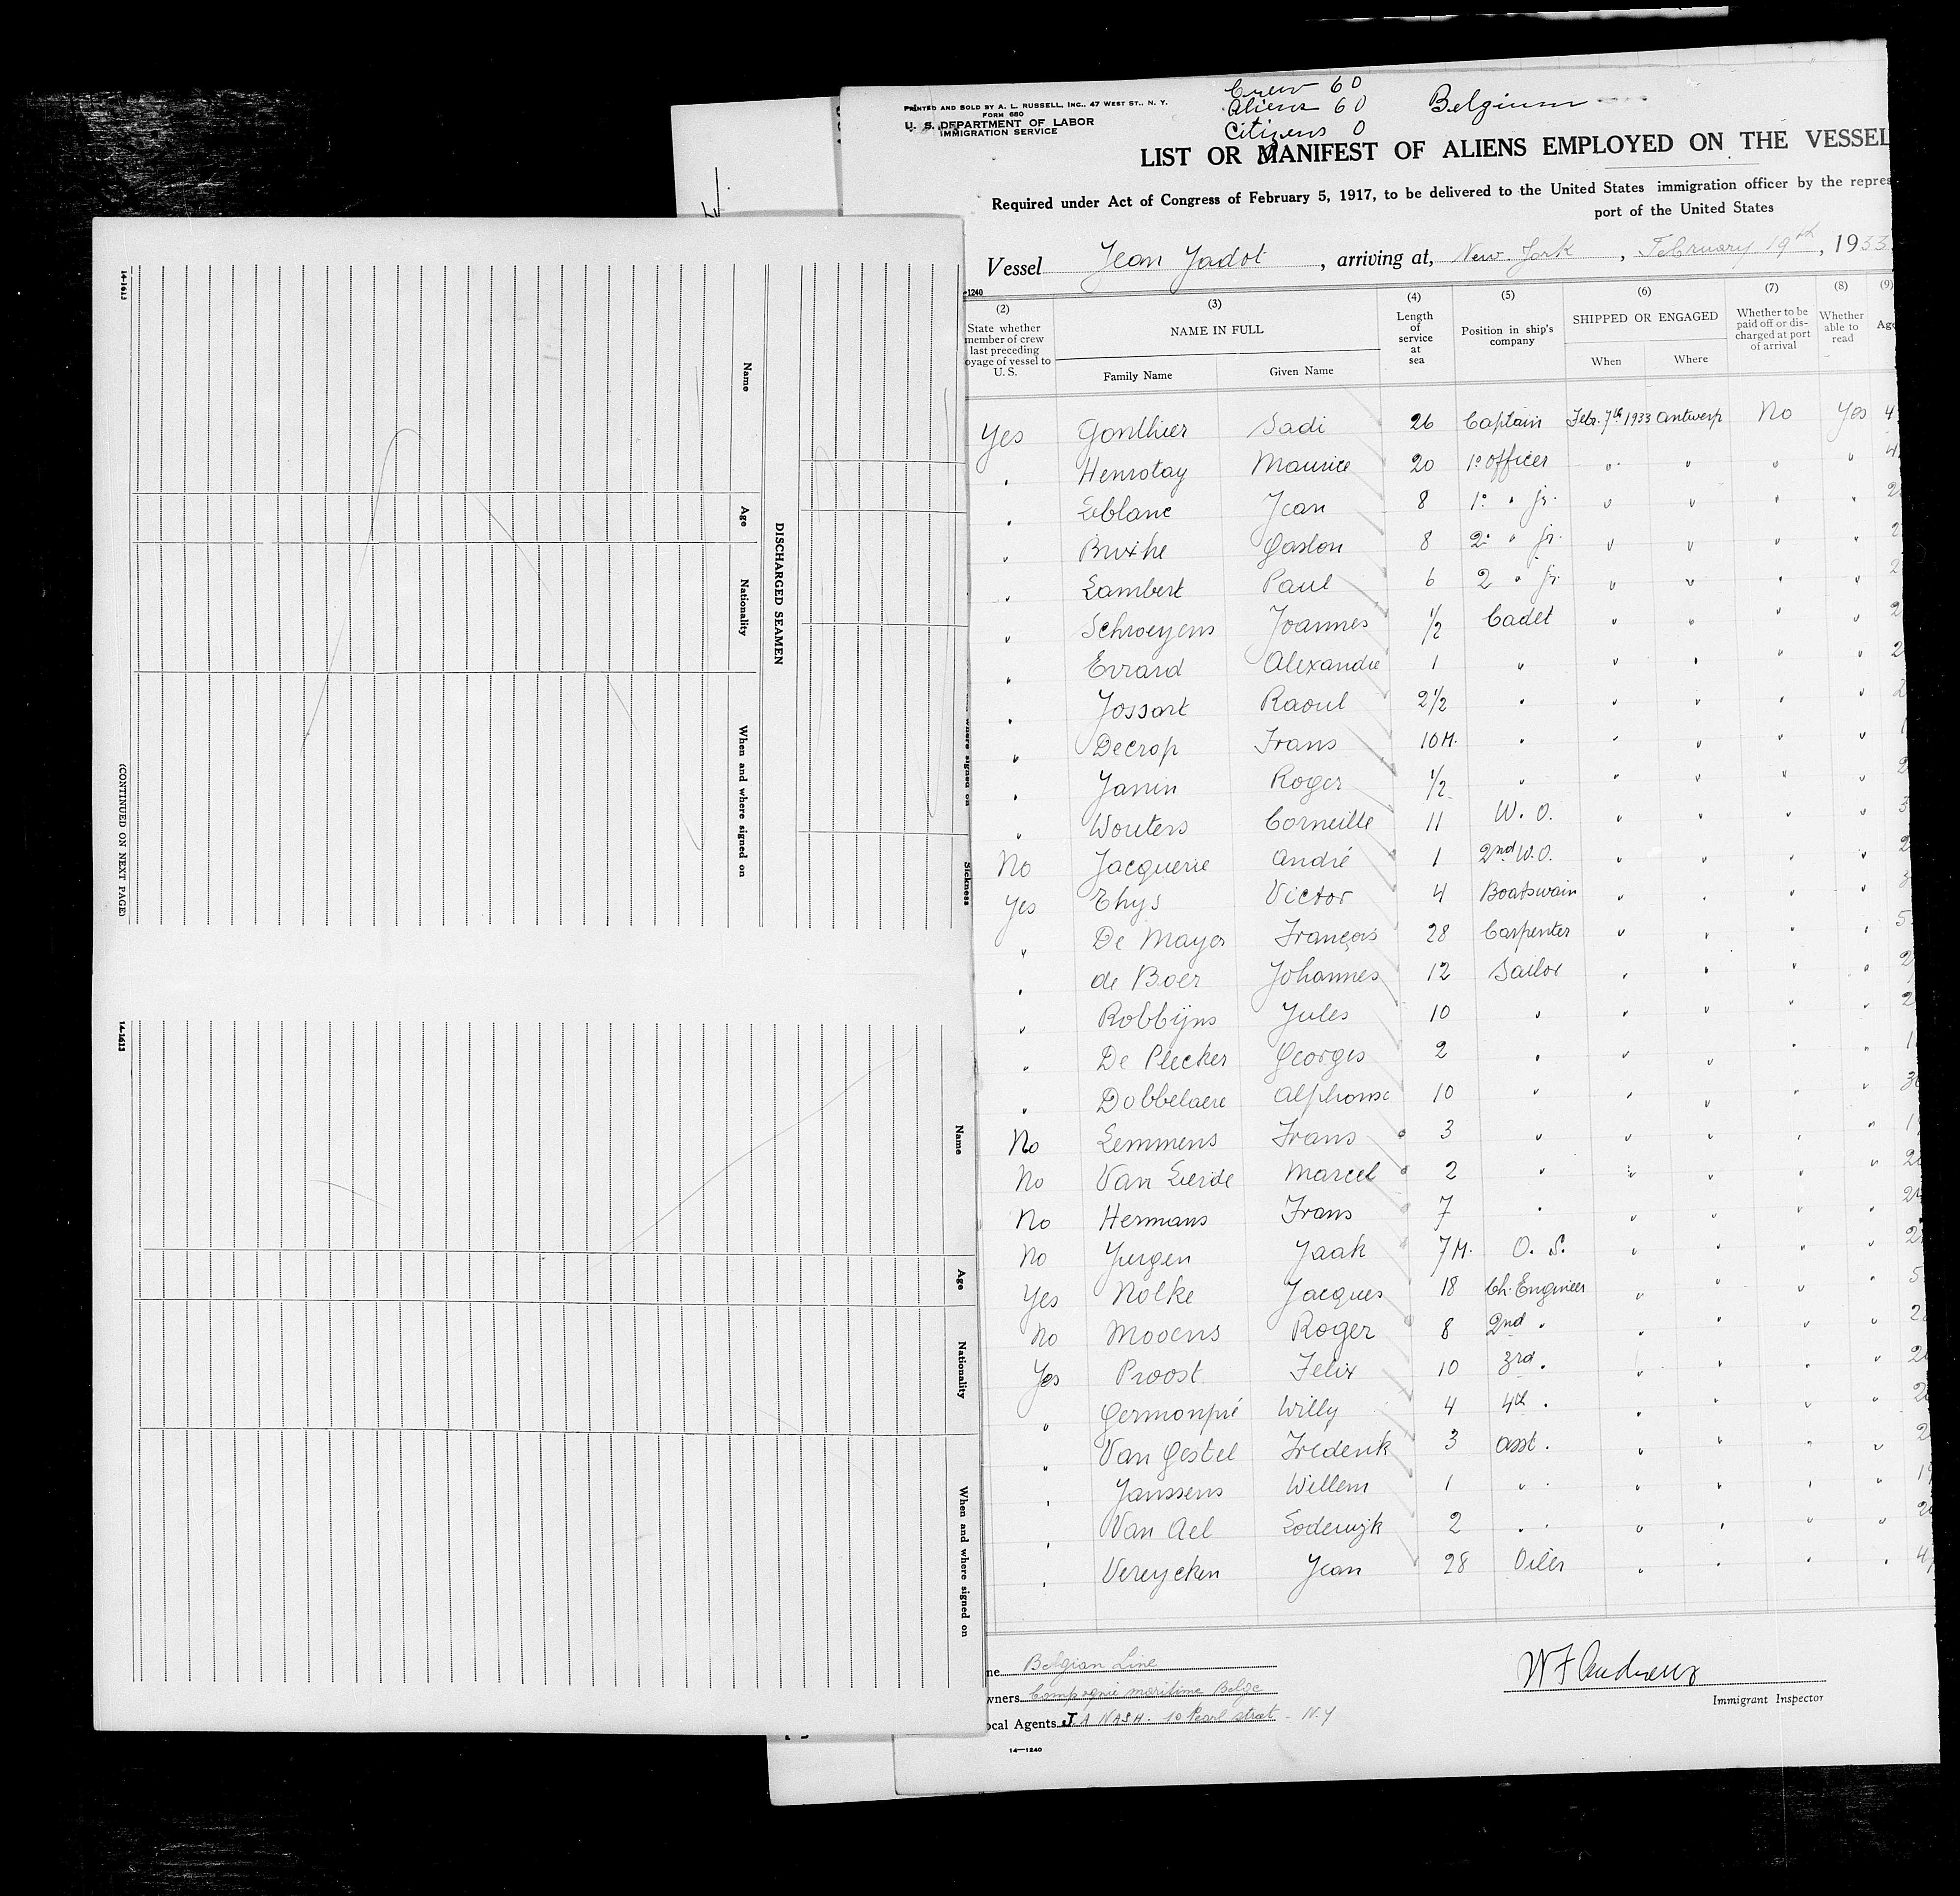 PRINTED AND SOLD BY A. L. RUSSELL, INC., 47 WEST ST., N. Y.
FORM 680
U. S. DEPARTMENT OF LABOR
IMMIGRATION SERVICE
Crew 60
Aliens 60
Citizens 0
Belgium
LIST OR MANIFEST OF ALIENS EMPLOYED ON THE VESSEL
Required under Act of Congress of February 5, 1917, to be delivered to the United States immigration officer by the repres
port of the United States
Vessel Jean Jadot, arriving at, New York, February 19th, 1933
1240
(2) (3) (4) (5) (6) (7) (8) (9)
State whether member of crew last preceding oyage of vessel to U. S.
NAME IN FULL
Family Name Given Name
Length of service at sea
Position in ship's company
SHIPPED OR ENGAGED
When Where
Whether to be paid off or discharged at port of arrival
Whether able to read
Age
Yes Gonthier Sadi 26 Captain Febr. 7th 1933 Antwerp No Yes 4
" Henrotay Maurice 20 1° Officer " " " " 4
" Leblanc Jean 8 1° " jr. " " " " 2
" Bruxhe Gaston 8 2° " jr. " " " " 2
" Lambert Paul 6 2 " jr. " " " " 2
" Schroeyens Joannes 1/2 Cadet " " " " 2
" Evrard Alexandre 1 " " " " " 2
" Jossart Raoul 2 1/2 " " " " " 2
" Decrop Frans 10 M. " " " " " 1
" Janin Roger 1/2 " " " " " 2
" Wouters Corneille 11 W. O. " " " " 3
No Jacquerie André 1 2nd W.O. " " " " 2
Yes Thys Victor 4 Boatswain " " " " 3
" De Mayer François 28 Carpenter " " " " 5
" de Boer Johannes 12 Sailor " " " " 2
" Robbijns Jules 10 " " " " " 2
" De Plecker Georges 2 " " " " " 1
" Dobbelaere Alphonse 10 " " " " " 30
No Lemmens Frans 3 " " " " " 1
No Van Lierde Marcel 2 " " " " " 2
No Hermans Frans 7 " " " " " 2
No Jurgen Jaak 7 M. O. S. " " " " 2
Yes Nolke Jacques 18 Ch. Engineer " " " " 5
No Mooens Roger 8 2nd " " " " " 2
Yes Proost Felix 10 3rd " " " " " 2
" Germonpré Willy 4 4th " " " " " 2
" Van Gestel Frederik 3 asst. " " " " 2
" Janssens Willem 1 " " " " " " 19
" Van Ael Lodewijk 2 " " " " " " 2
" Vereycken Jean 28 Oiler " " " " 4
ne Belgian Line
wners Compagnie maritime Belge
ocal Agents J. A NASH. 10 Pearl street - N.Y
14—1240
W F Andrews
Immigrant Inspector
14-1613
Name
Age
Nationality
When and where signed on
DISCHARGED SEAMEN
(CONTINUED ON NEXT PAGE)
where signed on
Sickness
14-1613
Name
Age
Nationality
When and where signed on